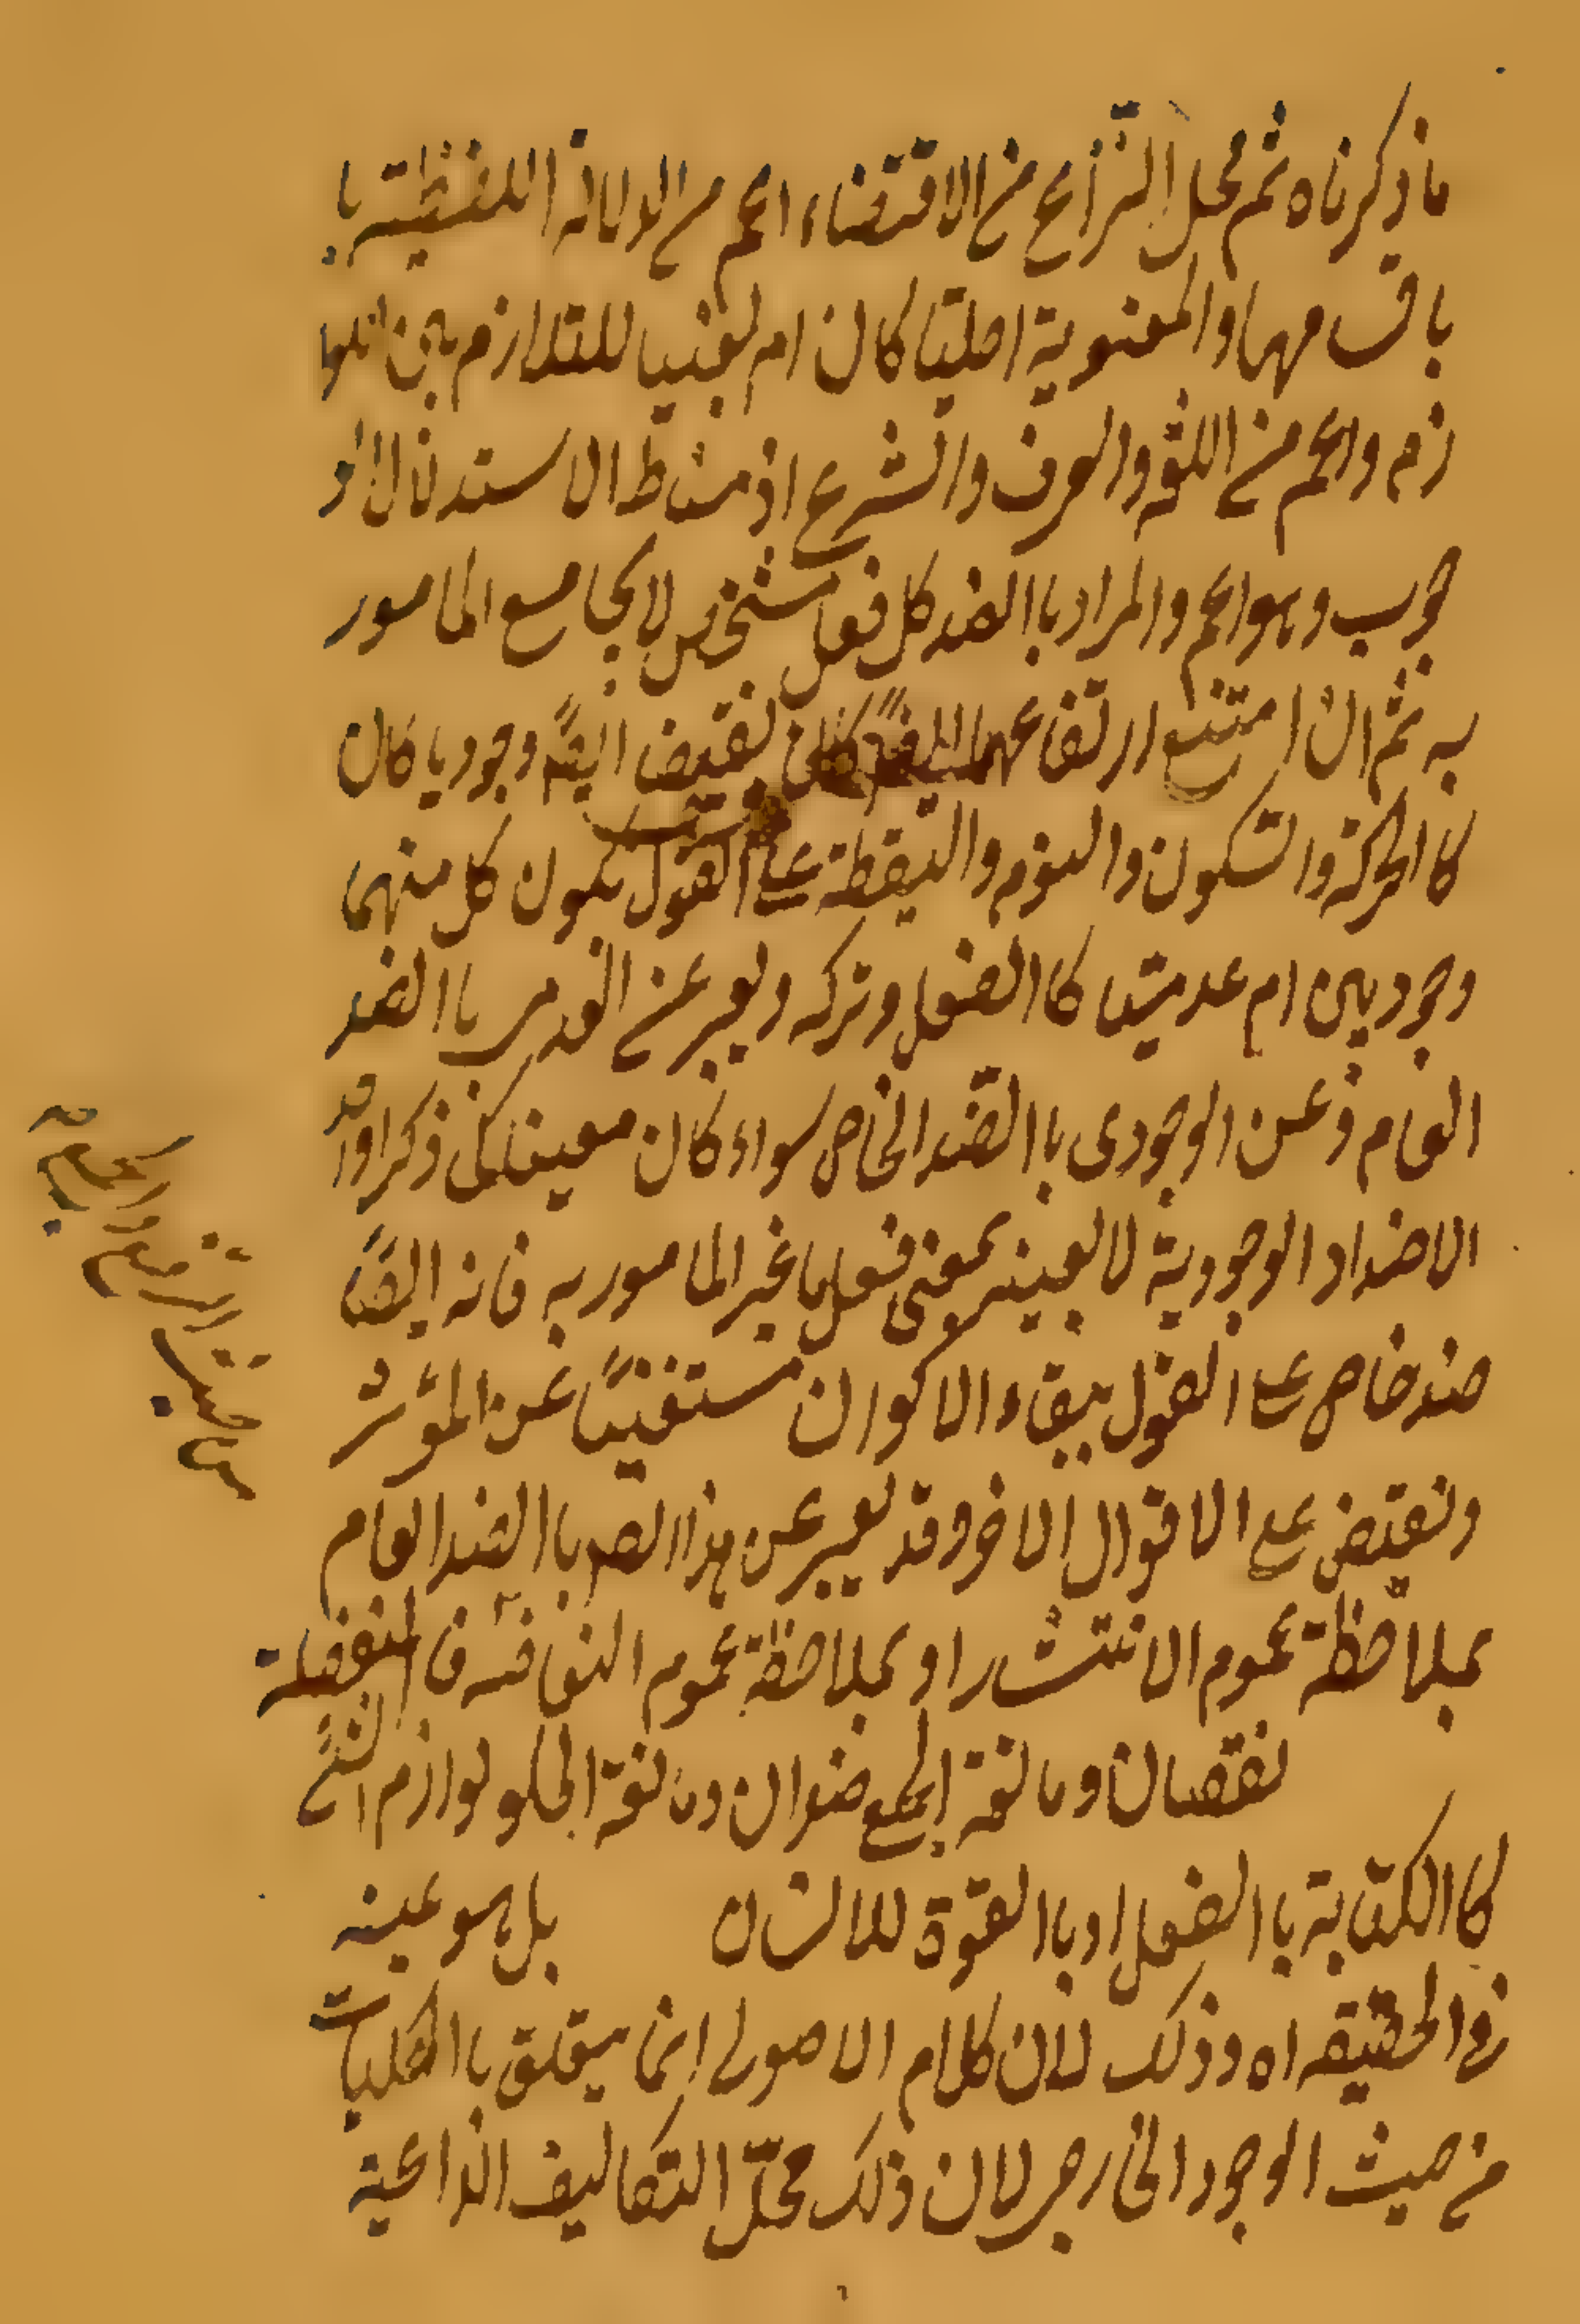 ما ذكرناه ثم محل النزاع من الاقتضاء اعم من الدلالة اللفظية با
باقسامها والمعنوية اصليا كان ام تبعيا للتلازم بين اللوا
زم واعم من اللغة والعرف والشرع اذ مناط الاستدلال الو
جوب وهو اعم والمراد باالضد كل فعل شخص لا يجامع المامور
به ثم ان امتنع ارتفاعهما ايضا كان نقيض ايضا وجوديا كان
كاالحركة والسكون والنوم واليقظة على القول بكون كل منهما
وجوديين ام عدميا كاالفعل وتركه ويعبر عن العدمى باالضد
العام وعن الوجودى باالضد الخاص سواء كان معينا كما ذكر او احد
الاضداد الوجودية لا بعينه بمعنى فعل ما غير المامور به فانه ايضا
ضد خاص على القول ببقاء الاكوان مستغنيا عن المؤثر
ونقيض على الاقوال الاخر وقد يعبر عن هذا الضد باالضد العام
بملاحظة عموم الانتشار او بملاحظة عموم المنافية فالمنفصلة
نقيضان ومانعة الجمع ضدان ومانعة الخلو لوازم الشئ
كاالكتابة باالفعل او باالقوة للانسان بل هو عينه
فى الحقيقه اه وذلك لان كلام الاصولى انما يتعلق باالكليات
من حيث الوجود الخارجى لان ذلك محل التكاليف الداعية